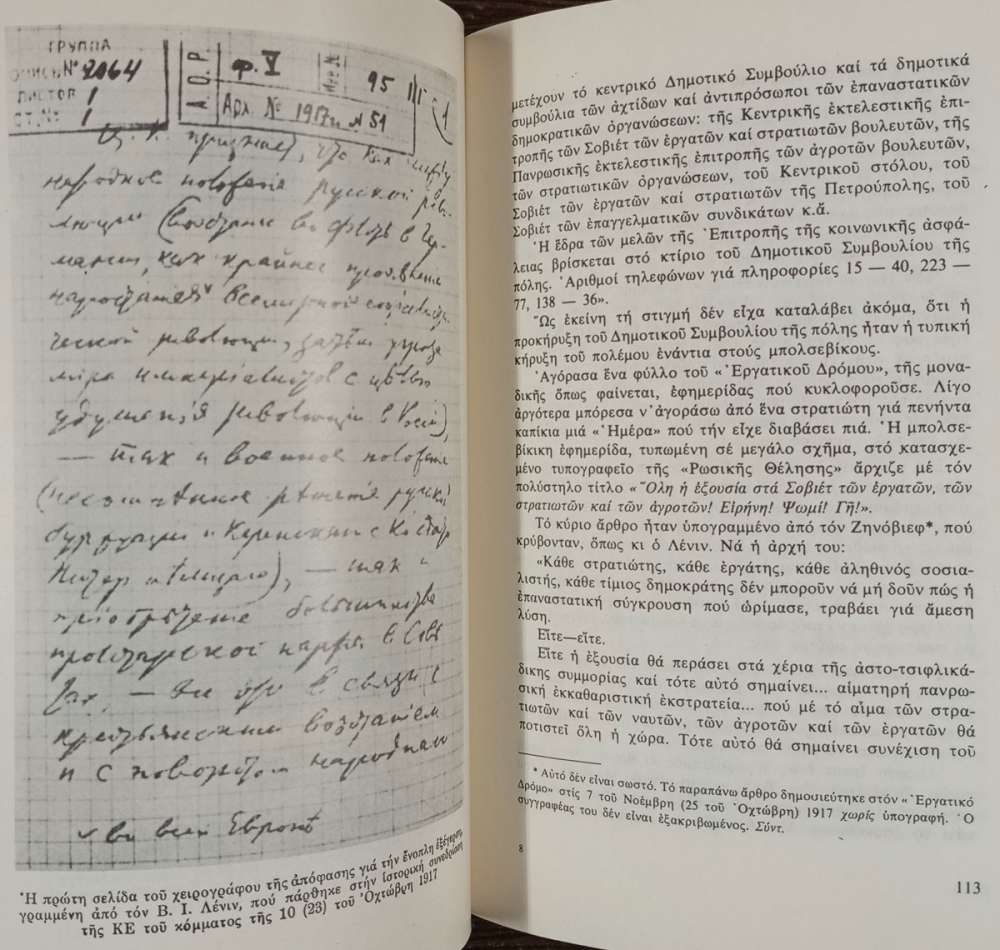 ГРУППА
ОПИСЬ № 2064
ЛИСТОВ 1
СТ. № 1
А.О.Р.
ф. V
95
III
1
Арх. № 1917 г. № 51
Ц. К. признает, что как между
народное положение русской рево-
люции (восстание во флоте в Гер-
мании, как крайнее проявление
нарастания всемирной социалисти
ческой революции, затем угроза
мира империалистов с целью
удушения революции в России),
— так и военное положение
(несомненное решение русской
буржуазии и Керенского с Ко сдать
Питер немцам), — так и
приобретение большинства
пролетарской партией в Сове
тах, — все это в связи с
крестьянским восстанием
и с поворотом народного
во всей Европе
Ἡ πρώτη σελίδα τοῦ χειρογράφου τῆς ἀπόφασης γιά τήν ἔνοπλη ἐξέγερση,
γραμμένη ἀπό τόν Β. Ι. Λένιν, πού πάρθηκε στήν ἱστορική συνεδρίαση
τῆς ΚΕ τοῦ κόμματος τῆς 10 (23) τοῦ Ὀχτώβρη 1917
μετέχουν τό κεντρικό Δημοτικό Συμβούλιο καί τά δημοτικά
συμβούλια τῶν ἀχτίδων καί ἀντιπρόσωποι τῶν ἐπαναστατικῶν
δημοκρατικῶν ὀργανώσεων: τῆς Κεντρικῆς ἐκτελεστικῆς ἐπι-
τροπῆς τῶν Σοβιέτ τῶν ἐργατῶν καί στρατιωτῶν βουλευτῶν, τῆς
Πανρωσικῆς ἐκτελεστικῆς ἐπιτροπῆς τῶν ἀγροτῶν βουλευτῶν,
τῶν στρατιωτικῶν ὀργανώσεων, τοῦ Κεντρικοῦ στόλου, τοῦ
Σοβιέτ τῶν ἐργατῶν καί στρατιωτῶν τῆς Πετρούπολης, τοῦ
Σοβιέτ τῶν ἐπαγγελματικῶν συνδικάτων κ.ἄ.
Ἡ ἕδρα τῶν μελῶν τῆς Ἐπιτροπῆς τῆς κοινωνικῆς ἀσφά-
λειας βρίσκεται στό κτίριο τοῦ Δημοτικοῦ Συμβουλίου τῆς
πόλης. Ἀριθμοί τηλεφώνων γιά πληροφορίες 15 — 40, 223 —
77, 138 — 36».
Ὥς ἐκείνη τή στιγμή δέν εἶχα καταλάβει ἀκόμα, ὅτι ἡ
προκήρυξη τοῦ Δημοτικοῦ Συμβουλίου τῆς πόλης ἦταν ἡ τυπική
κήρυξη τοῦ πολέμου ἐνάντια στούς μπολσεβίκους.
Ἀγόρασα ἕνα φύλλο τοῦ «Ἐργατικοῦ Δρόμου», τῆς μονα-
δικῆς ὅπως φαίνεται, ἐφημερίδας πού κυκλοφοροῦσε. Λίγο
ἀργότερα μπόρεσα ν' ἀγοράσω ἀπό ἕνα στρατιώτη γιά πενήντα
καπίκια μιά «Ἡμέρα» πού τήν εἶχε διαβάσει πιά. Ἡ μπολσε-
βίκικη ἐφημερίδα, τυπωμένη σέ μεγάλο σχῆμα, στό κατασχε-
μένο τυπογραφεῖο τῆς «Ρωσικῆς Θέλησης» ἄρχιζε μέ τόν
πολύστηλο τίτλο «Ὅλη ἡ ἐξουσία στά Σοβιέτ τῶν ἐργατῶν, τῶν
στρατιωτῶν καί τῶν ἀγροτῶν! Εἰρήνη! Ψωμί! Γῆ!».
Τό κύριο ἄρθρο ἦταν ὑπογραμμένο ἀπό τόν Ζηνόβιεφ*, πού
κρύβονταν, ὅπως κι ὁ Λένιν. Νά ἡ ἀρχή του:
«Κάθε στρατιώτης, κάθε ἐργάτης, κάθε ἀληθινός σοσια-
λιστής, κάθε τίμιος δημοκράτης δέν μποροῦν νά μή δοῦν πώς ἡ
ἐπαναστατική σύγκρουση πού ὡρίμασε, τραβάει γιά ἄμεση
λύση.
Εἴτε—εἴτε.
Εἴτε ἡ ἐξουσία θά περάσει στά χέρια τῆς ἀστο-τσιφλικά-
δικης συμμορίας καί τότε αὐτό σημαίνει... αἱματηρή πανρω-
σική ἐκκαθαριστική ἐκστρατεία... πού μέ τό αἷμα τῶν στρα-
τιωτῶν καί τῶν ναυτῶν, τῶν ἀγροτῶν καί τῶν ἐργατῶν θά
ποτιστεῖ ὅλη ἡ χώρα. Τότε αὐτό θά σημαίνει συνέχιση τοῦ
* Αὐτό δέν εἶναι σωστό. Τό παραπάνω ἄρθρο δημοσιεύτηκε στόν «Ἐργατικό
Δρόμο» στίς 7 τοῦ Νοέμβρη (25 τοῦ Ὀχτώβρη) 1917 χωρίς ὑπογραφή. Ὁ
συγγραφέας του δέν εἶναι ἐξακριβωμένος. Σύντ.
8
113